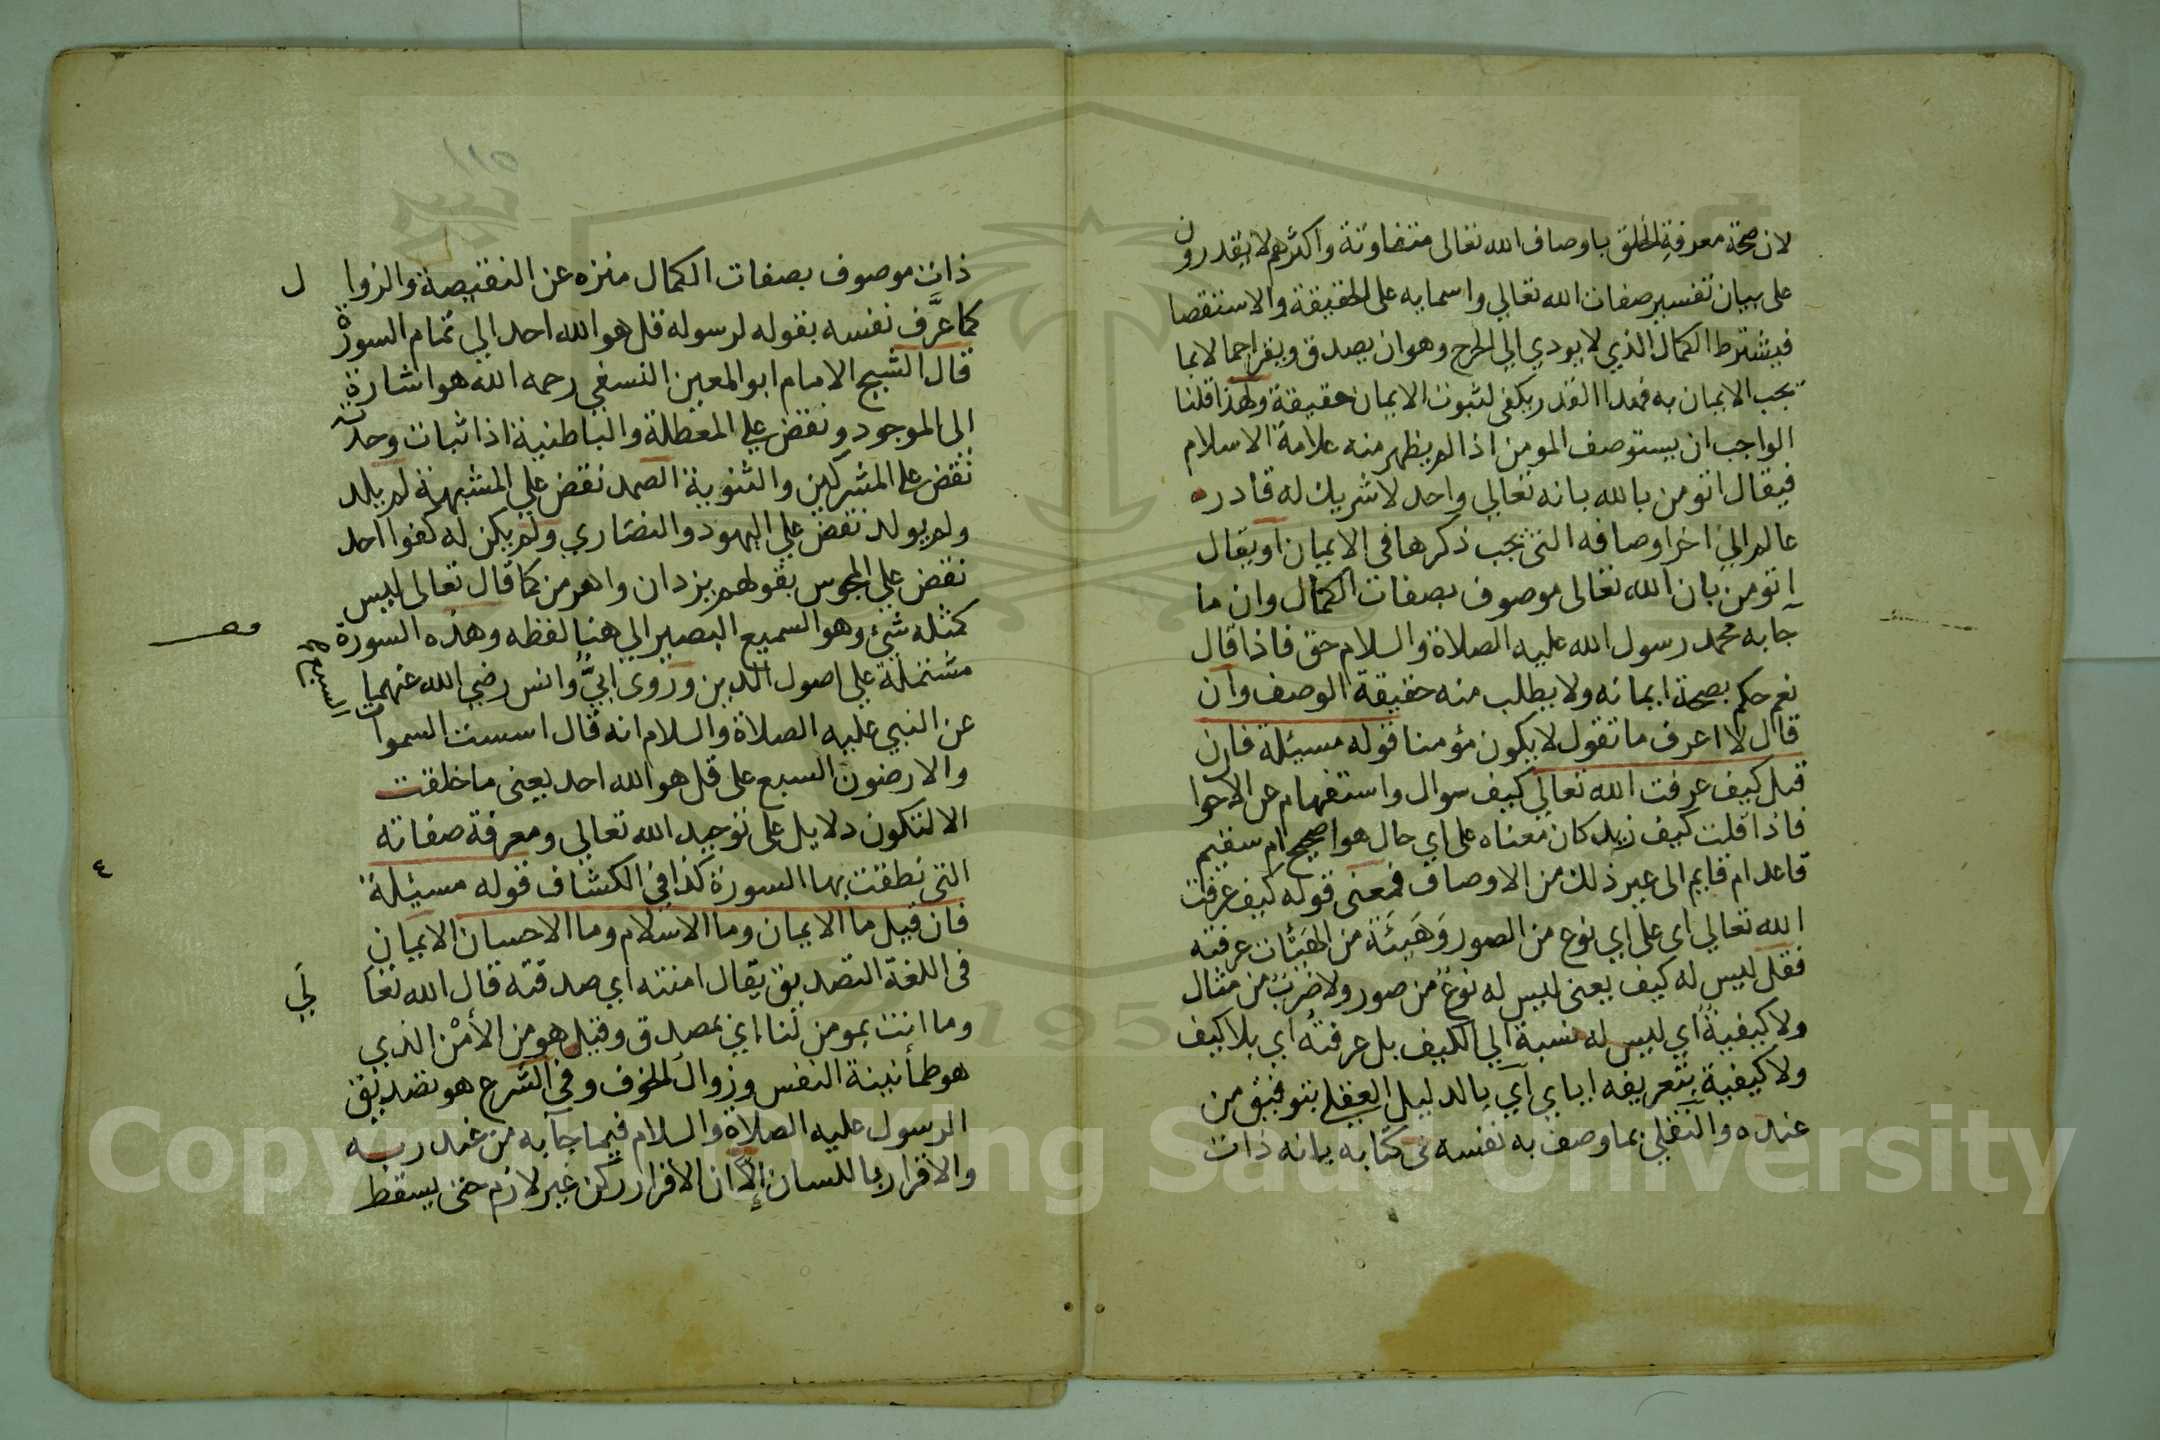 لان صحة معرفة الخلق باوصاف الله تعالى متفاوتة واكثرهم لا يقدرون
على بيان تفسير صفات الله تعالي واسمايه على الحقيقة والاستقصا
فيشترط الكمال الذي لا يودي الي الحرج وهو ان يصدق ويقر اجمالا بما
يجب الايمان به فهذا القدر يكفى لثبوت الايمان حقيقة ولهذا قلنا
الواجب ان يستوصف المومن اذا لم يظهر منه علامة الاسلام
فيقال اتومن بالله بانه تعالي واحد لا شريك له قادر
عالم الي اخر اوصافه التى يجب ذكرها فى الايمان او يقال
اتومن بان الله تعالى موصوف بصفات الكمال وان ما
جآ به محمد رسول الله عليه الصلاة والسلام حق فاذا قال
نعم حكم بصحة ايمانه ولا يطلب منه حقيقة الوصف وان
قال لا اعرف ما تقول لا يكون مؤمنا قوله مسيئلة فان
قيل كيف عرفت الله تعالي كيف سوال واستفهام عن الاحوا
فاذا قلت كيف زيد كان معناه على اي حال هو اصحيح ام سقيم
قاعد ام قايم الى غير ذلك من الاوصاف فمعنى قوله كيف عرفت
الله تعالي اى على اي نوع من الصور وَهَيئَة من الهَيَئات عرفته
فقل ليس له كيف يعنى ليس له نوع من صور ولا ضرب من مثال
ولا كيفية اي ليس له نسبة الي الكيف بل عرفته اي بلا كيف
ولا كيفية بتعريفه اياي اي بالدليل العقلي بتوفيق من
عنده والنقلي بما وصف به نفسه فى كتابه بانه ذات
ذات موصوف بصفات الكمال منزه عن النقيصة والزوا ل
كما عرَّف نفسه بقوله لرسوله قل هو الله احد الي تمام السورة
قال الشيخ الامام ابو المعين النسفي رحمه الله هو اشارة
الى الموجود ونقض علي المعطلة والباطنية اذ اثبات وحدته
نقض على المشركين والثنوية الصمد نقض علي المشبهة لم يلد
ولم يولد نقض علي اليهود والنصاري ولم يكن له كفوا احد
نقض علي المجوس بقولهم يزدان واهرمن كما قال تعالى ليس
كمثله شئ وهو السميع البصير الي هنا لفظه وهذه السورة
مشتملة علي اصول الدين وروى ابيٌّ وانس رضي الله عنهما
عن النبي عليه الصلاة والسلام انه قال اسست السموات السبع
والارضون السبع على قل هو الله احد يعنى ما خلقت
الا لتكون دلايل على توحيد الله تعالي ومعرفة صفاته
٤
التى نطقت بها السورة كذا في الكشاف قوله مسيئلة
فان قيل ما الايمان وما الاسلام وما الاحسان الايمان
فى اللغة التصديق يقال امنته اي صدقته قال الله تعا لَي
وما انت بمومن لنا اي بمصدق وقيل هو من الأمْن الذي
هو طمأنينة النفس وزوال الخوف وفي الشرع هو تصديق
الرسول عليه الصلاة والسلام فيما جآ به من عند ربه
والاقرار باللسان إلاّ ان الاقرار ركن غير لازم حتى يسقط
Copyright © King Saud University